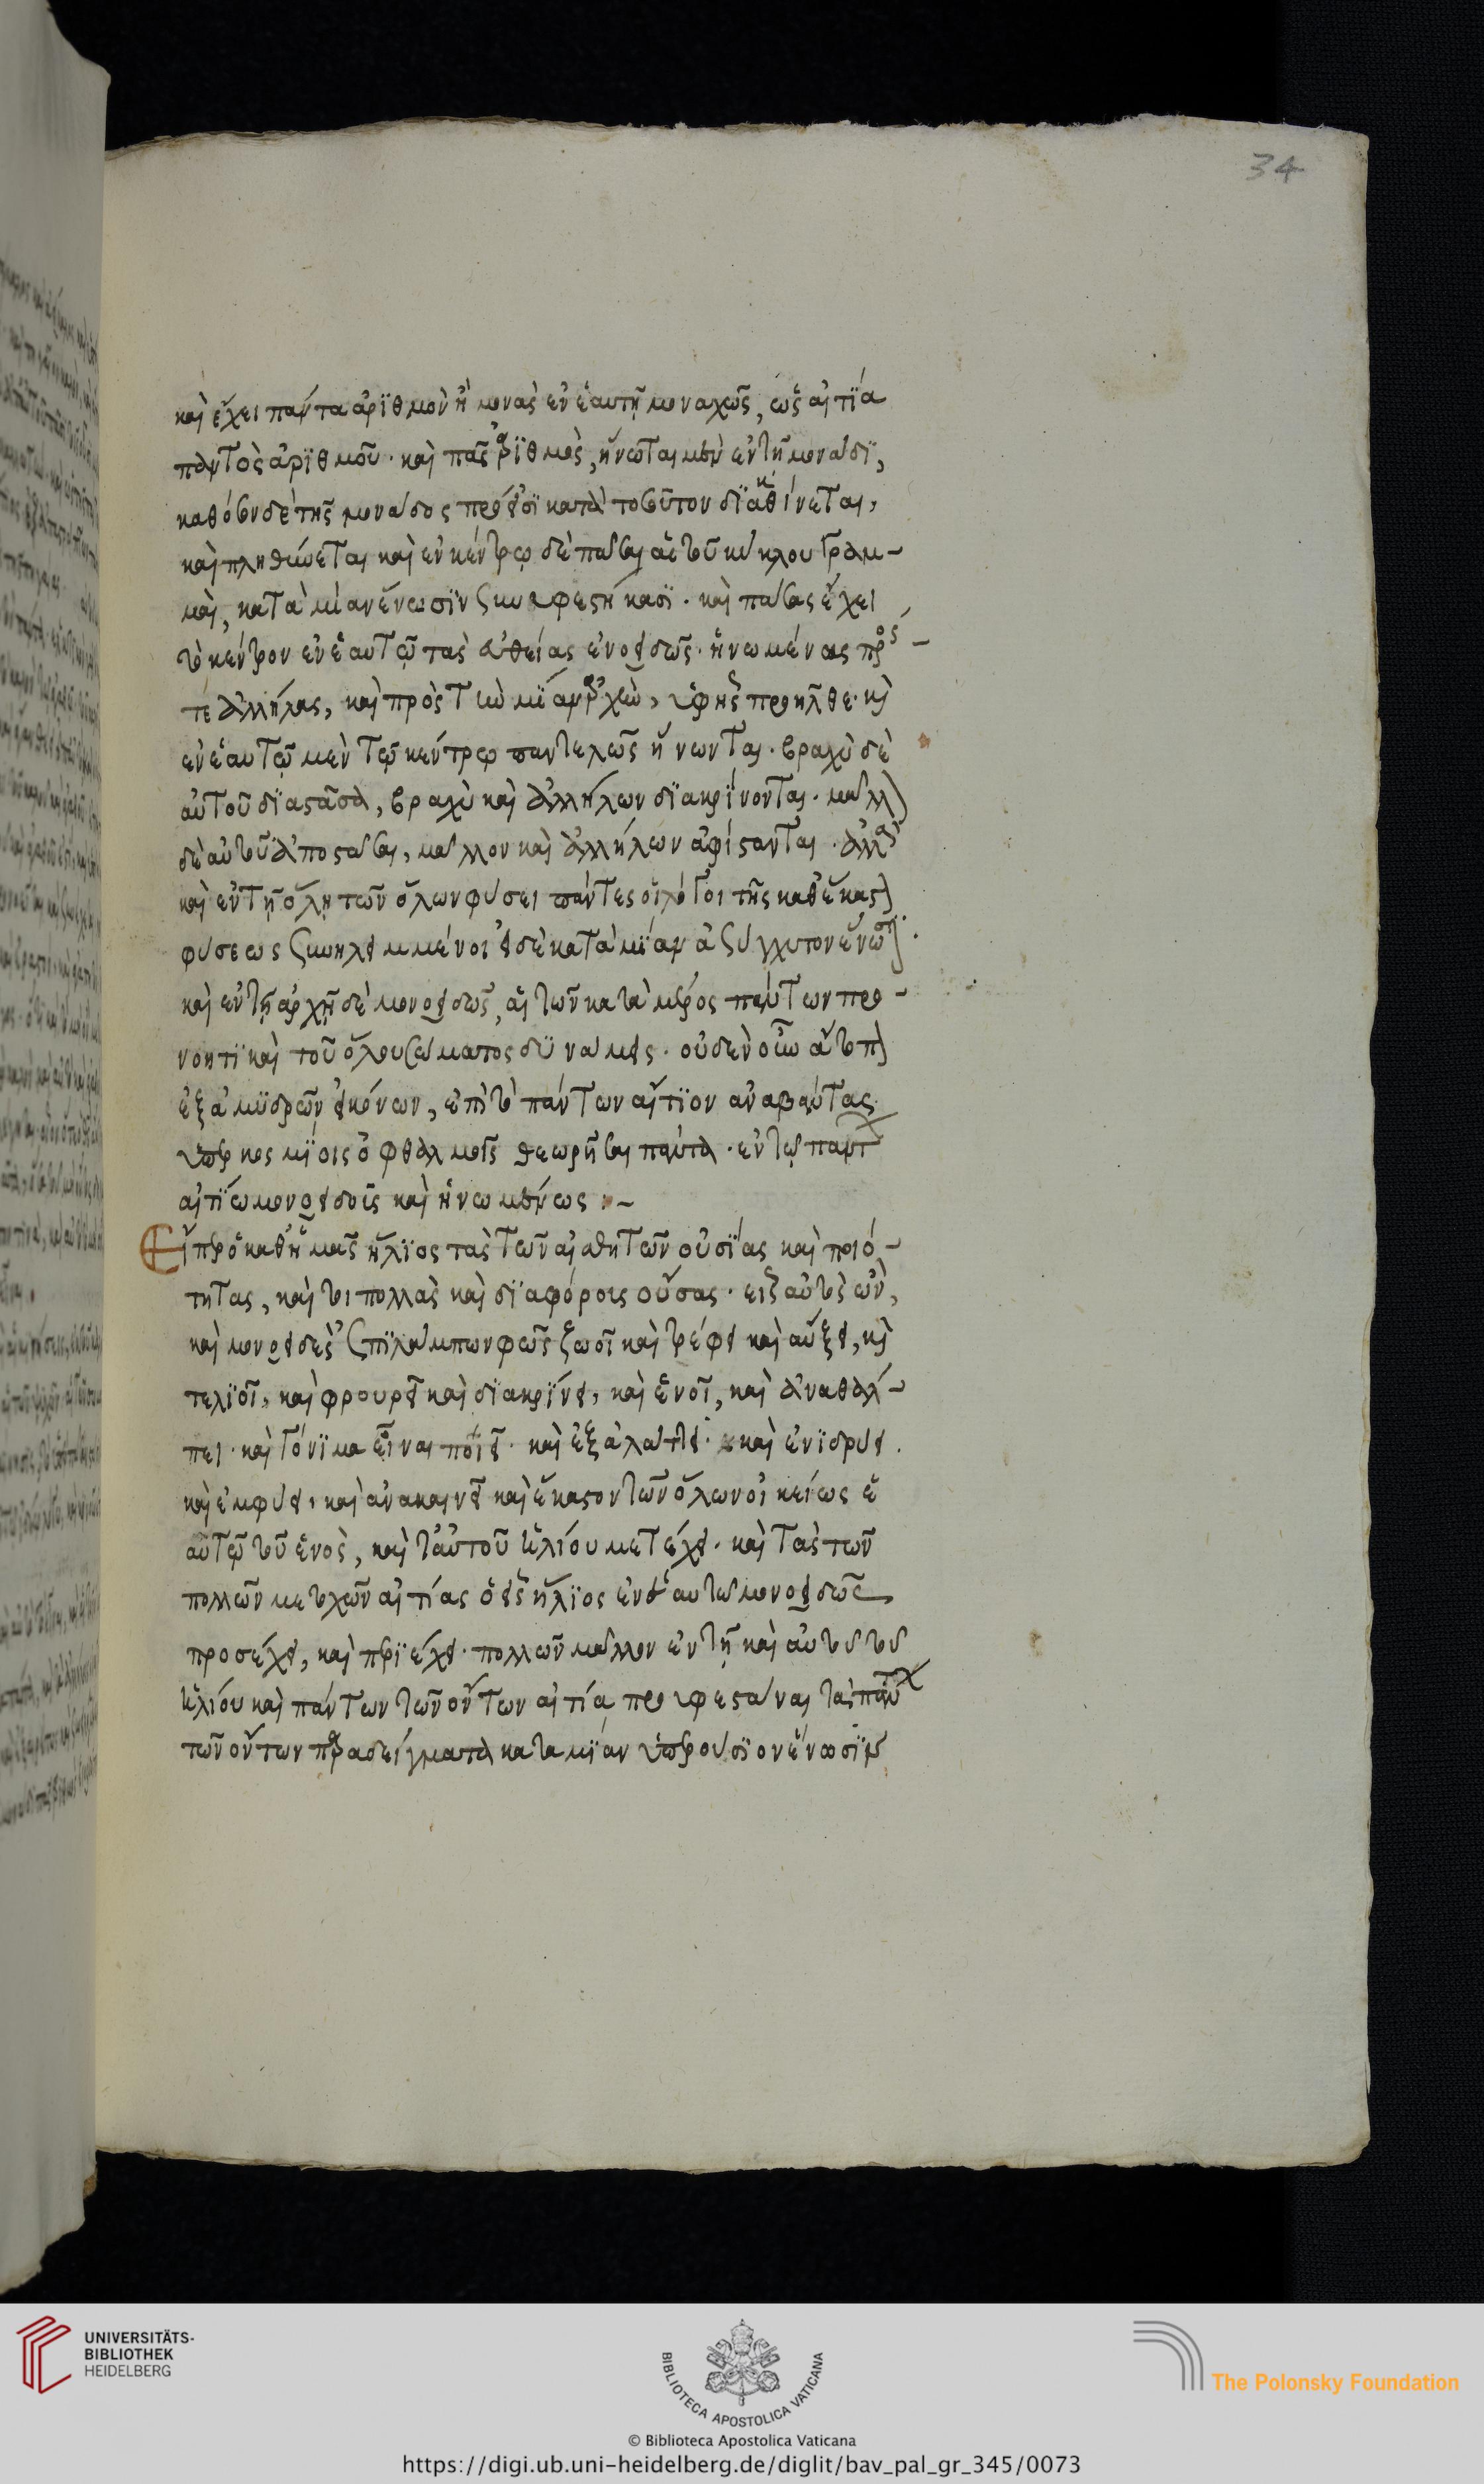 34
καὶ ἔχει πάντα ἀρϊθμὸν ἡ μονὰς ἐν ἑαυτῇ μοναχῶς, ὡς αἰτΐα
παντὸς ἀρϊθμοῦ · καὶ πᾶς ἀρϊθμὸς, ἥνωται μὲν ἐν τῇ μονάδϊ,
καθόσον δὲ τῆς μονάδος πρόεισϊ κατὰ τοσοῦτον δϊακρίνεται,
καὶ πληθύνεται καὶ ἐν κέντρῳ δὲ πᾶσαι αἱ τοῦ κύκλου γραμ-
μαὶ, κατὰ μίαν ἕνωσϊν συνυφεστήκασϊ · καὶ πάσας ἔχει
τὸ κέντρον ἐν ἑαυτῷ τὰς εὐθείας ἑνοειδῶς · ἡνωμένας πρός -
τε ἀλλήλας, καὶ πρὸς τὴν μΐαν ἀρχὴν, ἀφ' ἧς προῆλθε · κὶ
ἐν ἑαυτῷ μὲν τῷ κέντρῳ παντελῶς ἥνωνται · βραχὺ δὲ
αὐτοῦ δϊαστᾶσαι, βραχὺ καὶ ἀλλήλων δϊακρΐνονται · μᾶλλ
δὲ αὐτοῦ ἀποστᾶσαι, μᾶλλον καὶ ἀλλήλων ἀφίστανται · ἀλλὰ
καὶ ἐν τῇ ὅλῃ τῶν ὅλων φύσει πάντες οἱ λόγοι τῆς καθ' ἕκαστ
φύσεως συνειλειμμένοι εἰσὶ κατὰ μΐαν ἀσύγχυτον ἕνωσϊ ·
καὶ ἐν τῇ ἀρχῇ δὲ μονοειδῶς, αἱ τῶν κατὰ μέρος πάντων προ -
νοητϊκαὶ τοῦ ὅλου σώματος δϋνάμεις · οὐδὲν οὖν ἄτοπ
ἐξ ἀμϋδρῶν εἰκόνων, ἐπὶ τὸ πάντων αἴτϊον ἀναβάντας
ὑπερκοσμΐοις ὀφθαλμοῖς θεωρῆσαι πάντα · ἐν τῷ πάντ
αἰτΐω μονοειδοῖς καὶ ἡνωμένως : -
Εἰ γὰρ ὁ καθ' ἡμᾶς ἥλϊος τὰς τῶν αἰσθητῶν οὐσΐας καὶ ποιό -
τητας, καὶ τοι πολλὰς καὶ δϊαφόροις οὔσας · εἷς αὐτὸς ὢν,
καὶ μονοειδὲς ἐπϊλάμπων φῶς ζωοῖ καὶ τρέφει καὶ αὔξει, κὶ
τελϊοῖ, καὶ φρουρεῖ καὶ δϊακρΐνει, καὶ ἑνοῖ, καὶ ἀναθάλ -
πει · καὶ γόνϊμα εἶναι ποιεῖ · καὶ ἐξαλάττει · καὶ ἐνϊδρύει .
καὶ ἐμφύει, καὶ ἀνακαινεῖ καὶ ἕκαστον τῶν ὅλων οἰκείως ἑ
αὐτῷ τοῦ ἑνὸς, καὶ ταὐτοῦ ἡλίου μετέχει · καὶ τὰς τῶν
πολλῶν μετοχῶν αἰτίας ὁ εἷς ἥλϊος ἐν ἑαυτῷ μονοειδῶς
προσέχει, καὶ περϊέχει · πολλῶν μᾶλλον ἐν τῇ καὶ αὐτοῦ τοῦ
ἡλίου καὶ πάντων τῶν ὄντων αἰτίᾳ προϋφεστάναι τὰ πάντ
τῶν ὄντων παραδείγματα κατὰ μΐαν ὑπερούσϊον ἕνωσϊν
UNIVERSITÄTS-
BIBLIOTHEK
HEIDELBERG
BIBLIOTECA APOSTOLICA VATICANA
The Polonsky Foundation
© Biblioteca Apostolica Vaticana
https://digi.ub.uni-heidelberg.de/diglit/bav_pal_gr_345/0073